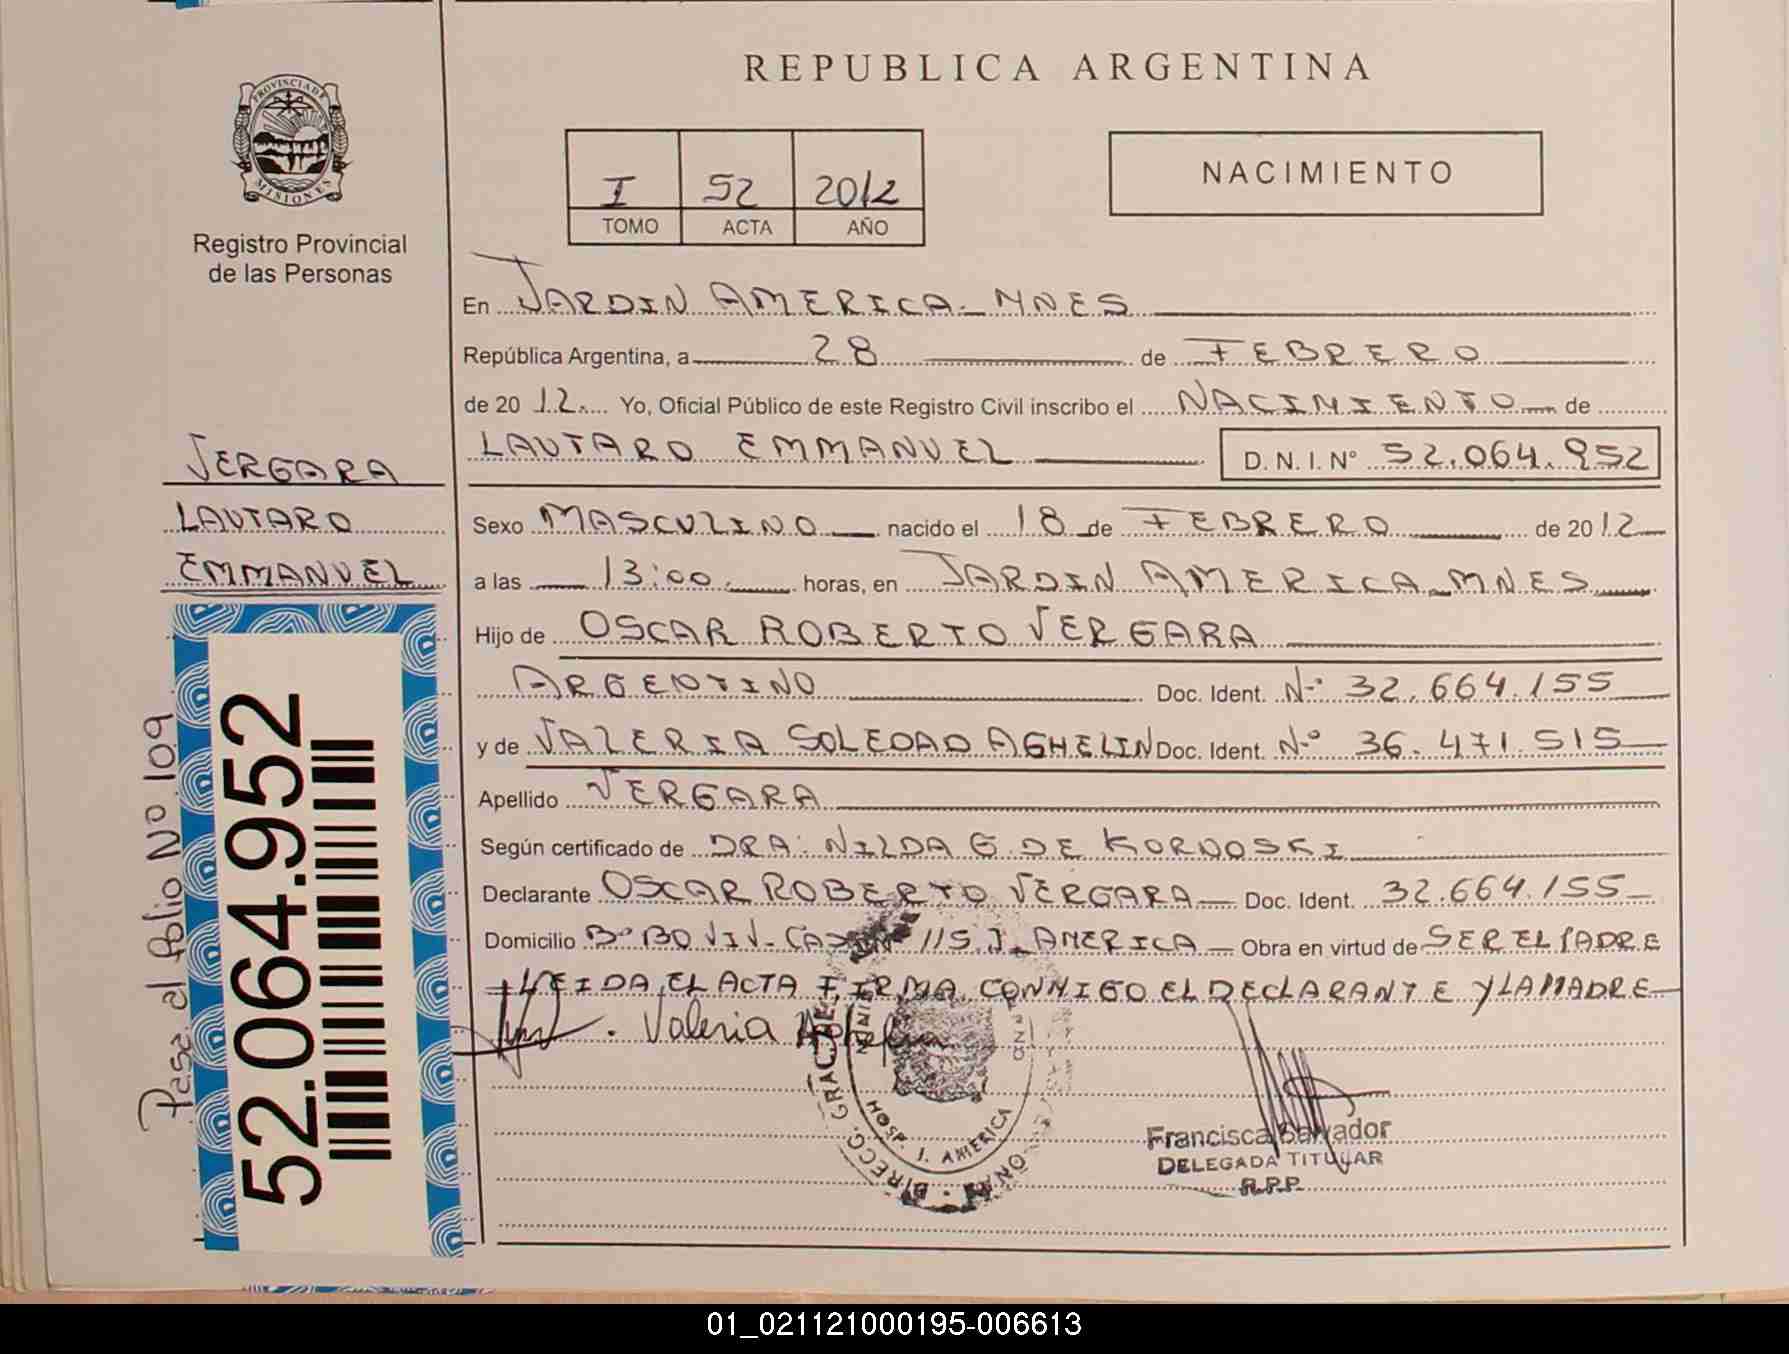 REPUBLICA ARGENTINA
PROVINCIA DE
MISIONES
Registro Provincial
de las Personas
I 52 2012
TOMO ACTA AÑO
NACIMIENTO
En JARDIN AMERICA - MNES
República Argentina, a 28 de FEBRERO
de 20 12 Yo, Oficial Público de este Registro Civil inscribo el NACIMIENTO de
LAUTARO EMMANUEL D.N.I.Nº 52.064.952
VERGARA
LAUTARO
EMMANUEL
Sexo MASCULINO nacido el 18 de FEBRERO de 2012
a las 13:00 horas, en JARDIN AMERICA - MNES
Hijo de OSCAR ROBERTO VERGARA
ARGENTINO Doc. Ident. Nº 32.664.155
y de VALERIA SOLEDAD AGHELIN Doc. Ident. Nº 36.471.515
Apellido VERGARA
Según certificado de DRA: NILDA G. DE KORDOSKI
Declarante OSCAR ROBERTO VERGARA Doc. Ident. 32.664.155
Domicilio Bº 80 VIV - 115 J. AMERICA Obra en virtud de SER EL PADRE
LEIDA EL ACTA FIRMA CONMIGO EL DECLARANTE Y LA MADRE
Valeria
DIRECC. GRAL DE
HOSP. J. AMERICA
Francisca Salvador
DELEGADA TITULAR
R.P.P.
52.064.952
Pasa al folio Nº 109
01_021121000195-006613